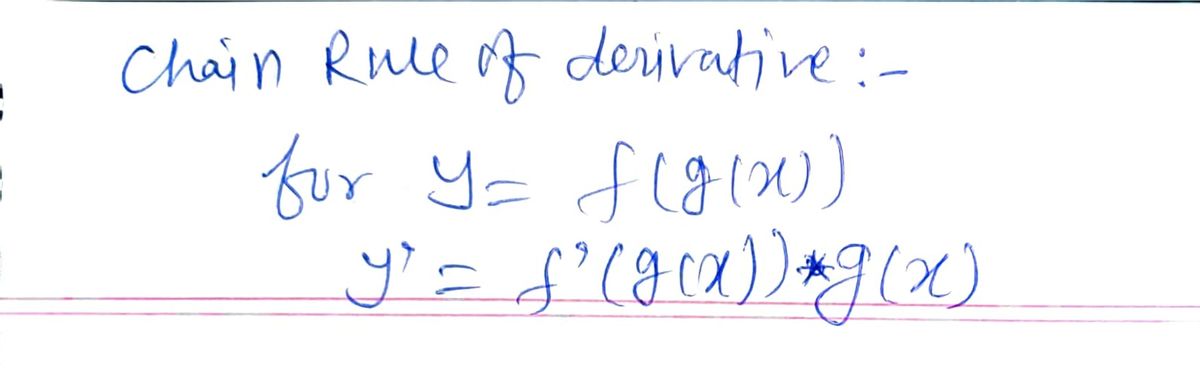 Chain Rule of derivative :-
for y = f(g(x))
y' = f'(g(x))*g(x)